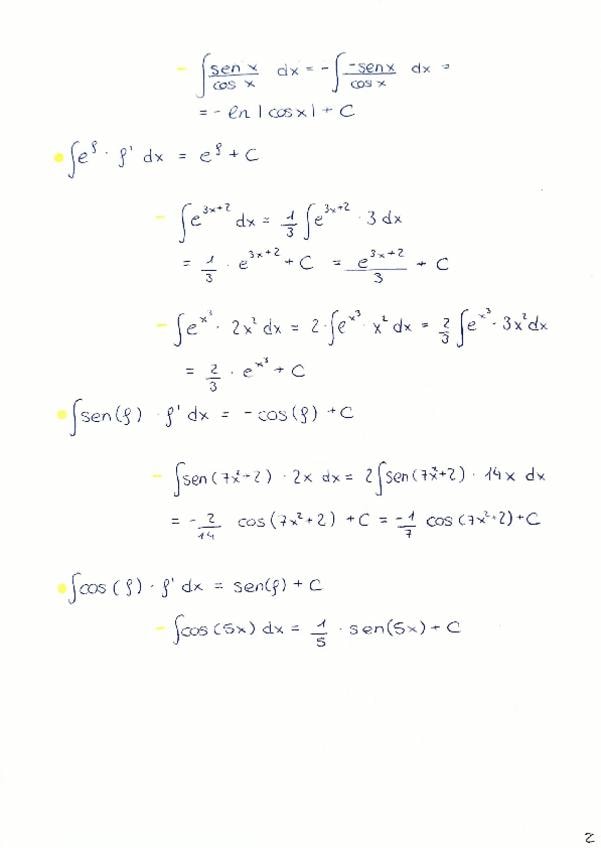 - ∫ sen x / cos x dx = - ∫ -sen x / cos x dx =
= - ln |cos x| + C
• ∫e^f · f' dx = e^f + C
- ∫e^(3x+2) dx = 1/3 ∫e^(3x+2) · 3 dx
= 1/3 · e^(3x+2) + C = e^(3x+2)/3 + C
- ∫e^(x³) · 2x² dx = 2 · ∫e^(x³) · x² dx = 2/3 ∫e^(x³) · 3x² dx
= 2/3 · e^(x³) + C
• ∫sen(f) · f' dx = - cos(f) + C
- ∫sen(7x²+2) · 2x dx = 2∫sen(7x²+2) · 14x dx
= -2/14 cos(7x²+2) + C = -1/7 cos(7x²+2) + C
• ∫cos(f) · f' dx = sen(f) + C
- ∫cos(5x) dx = 1/5 · sen(5x) + C
2